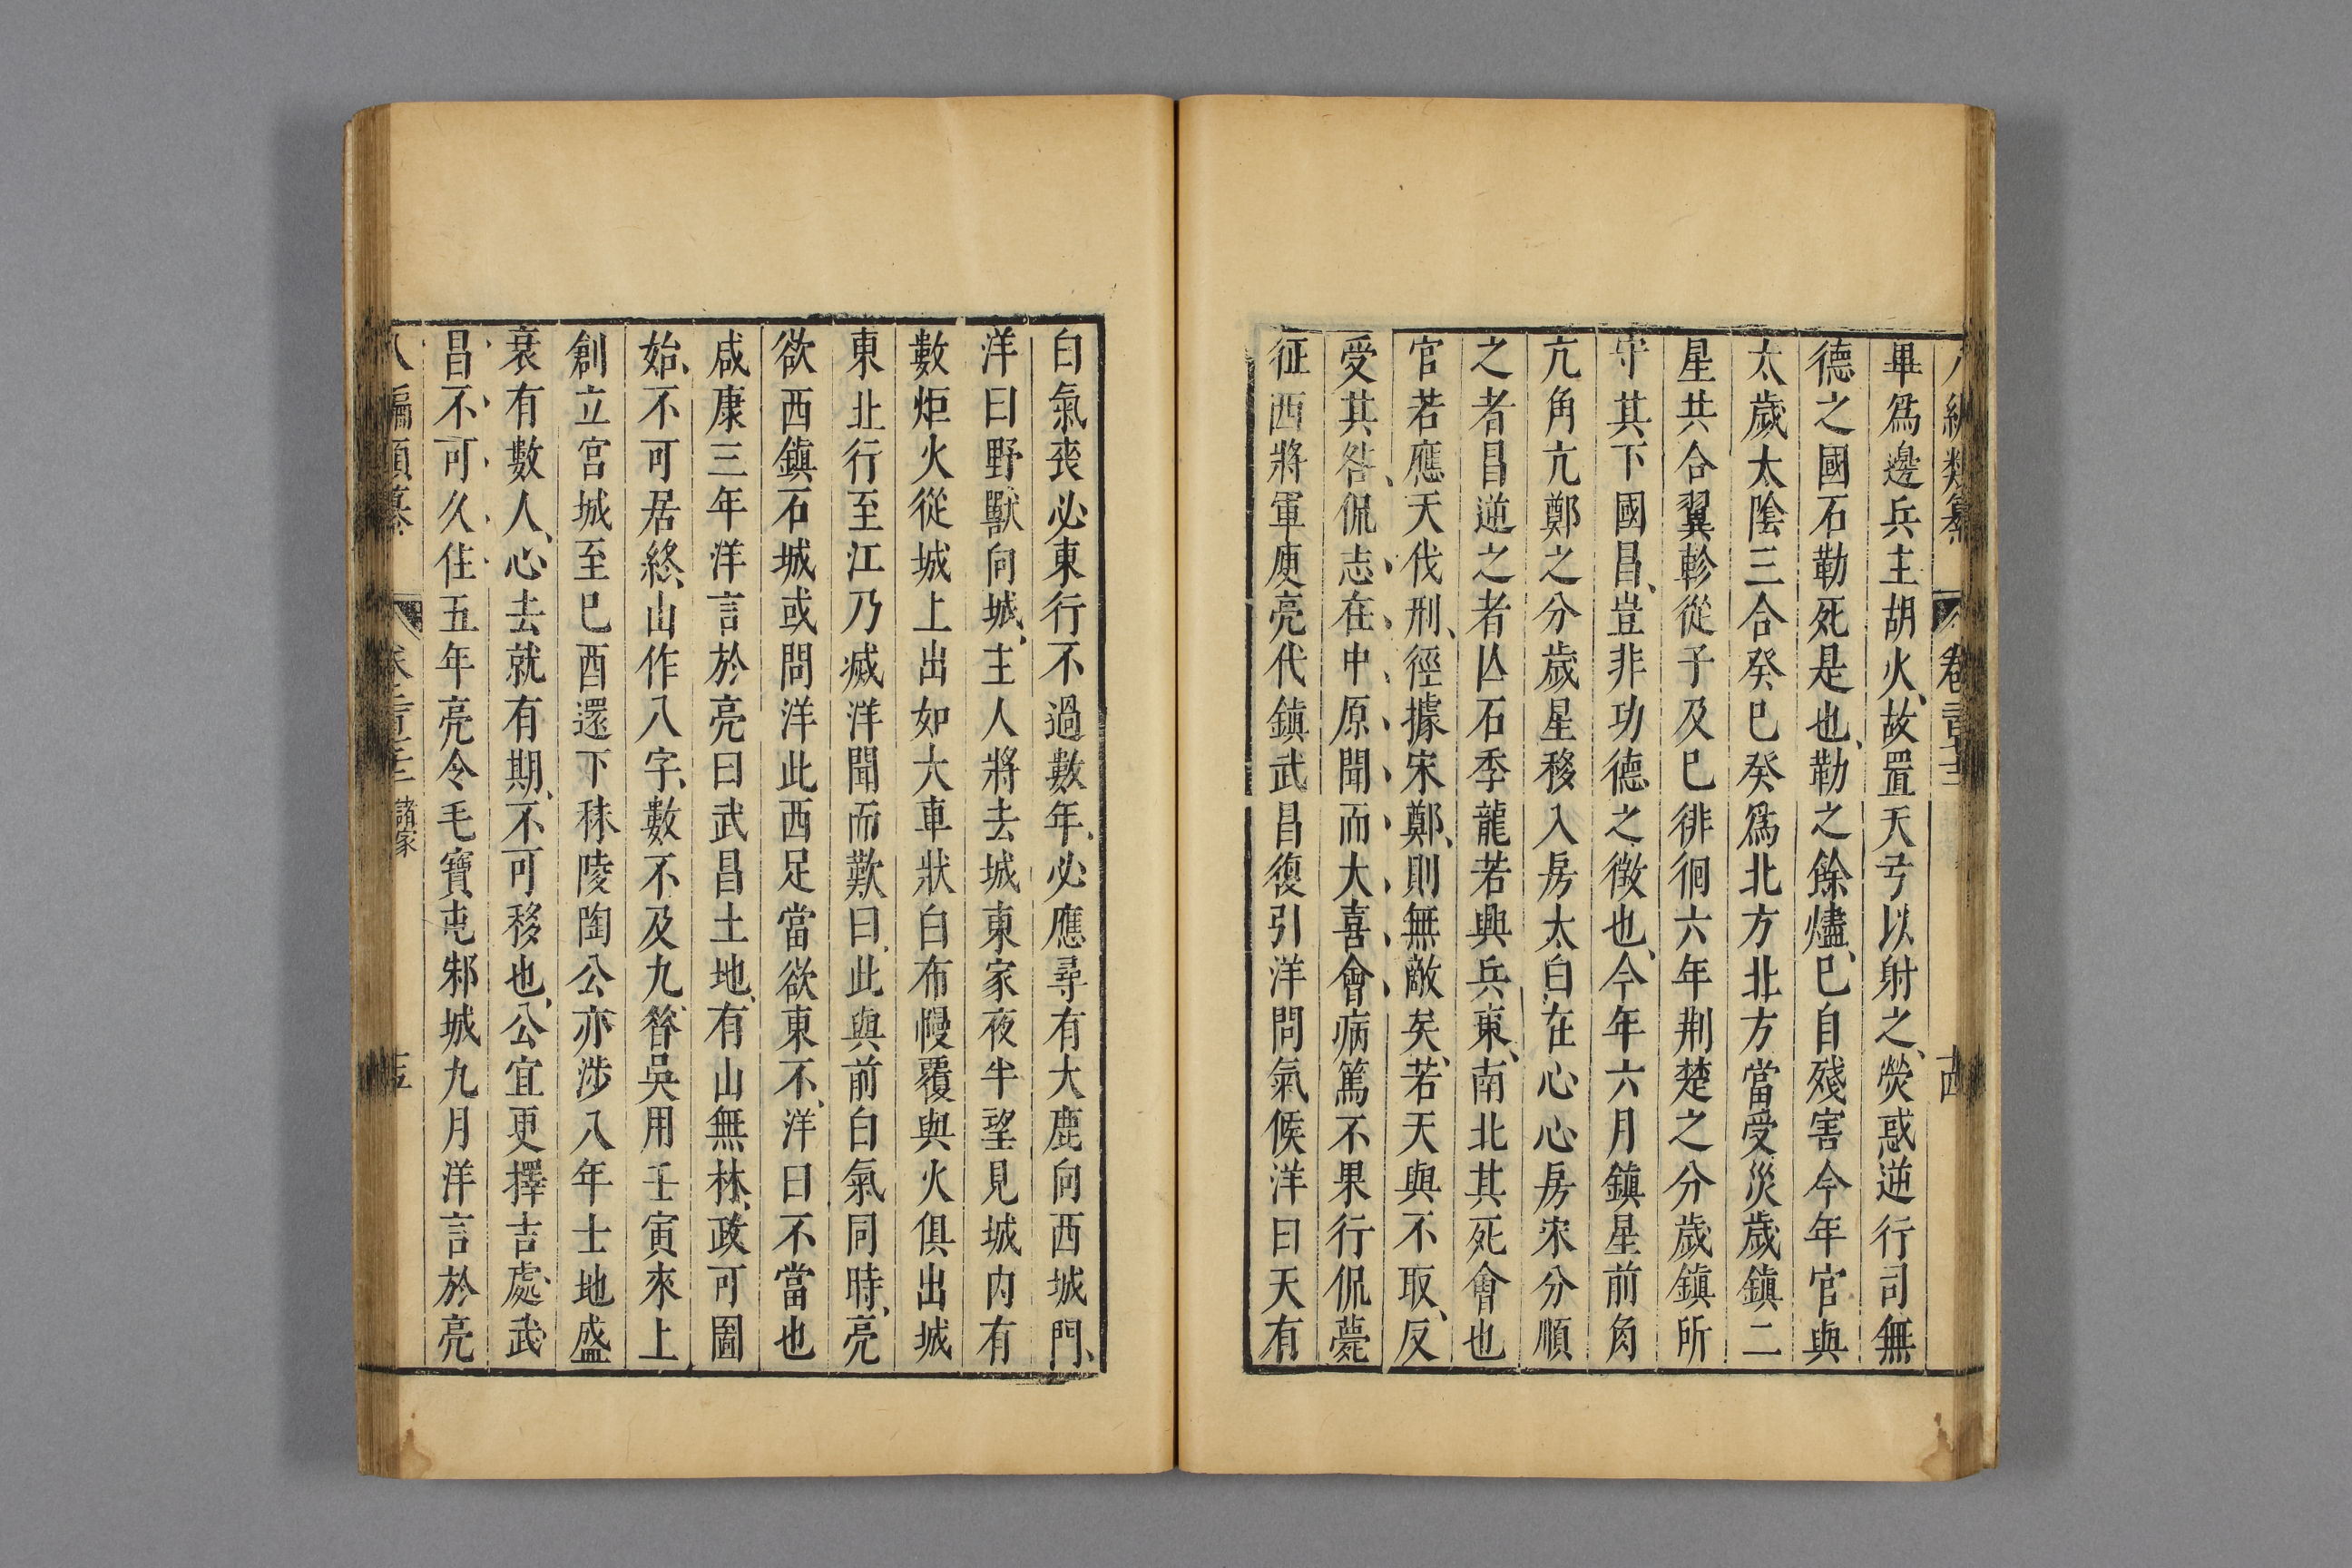 編類纂 卷 十四
畢爲邊兵主胡火故置天弓以射之熒惑逆行司無
德之國石勒死是也勒之餘燼已自殘害今年官與
太歲太陰三合癸巳癸爲北方北方當受災歲鎮二
星共合翼軫從子及巳徘徊六年荆楚之分歲鎮所
守其下國昌豈非功德之徵也今年六月鎮星前角
亢角亢鄭之分歲星移入房太白在心心房宋分順
之者昌逆之者亾石季龍若興兵東南北其死會也
官若應天伐刑徑據宋鄭則無敵矣若天與不取反
受其咎侃志在中原聞而大喜會病篤不果行侃薨
征西將軍庾亮代鎮武昌復引洋問氣候洋曰天有
白氣喪必東行不過數年必應尋有大鹿向西城門
洋曰野獸向城主人將去城東家夜半望見城内有
數炬火從城上出如大車狀白布幔覆與火俱出城
東北行至江乃滅洋聞而歎曰此與前白氣同時亮
欲西鎮石城或問洋此西足當欲東不洋曰不當也
咸康三年洋言於亮曰武昌土地有山無林政可圖
始不可居終山作八字數不及九昝吳用壬寅來上
創立宮城至巳酉還下秣陵陶公亦涉八年士地盛
衰有數人心去就有期不可移也公宜更擇吉處武
昌不可久住五年亮令毛寶屯邾城九月洋言於亮
八編類纂 卷 諸家 十五